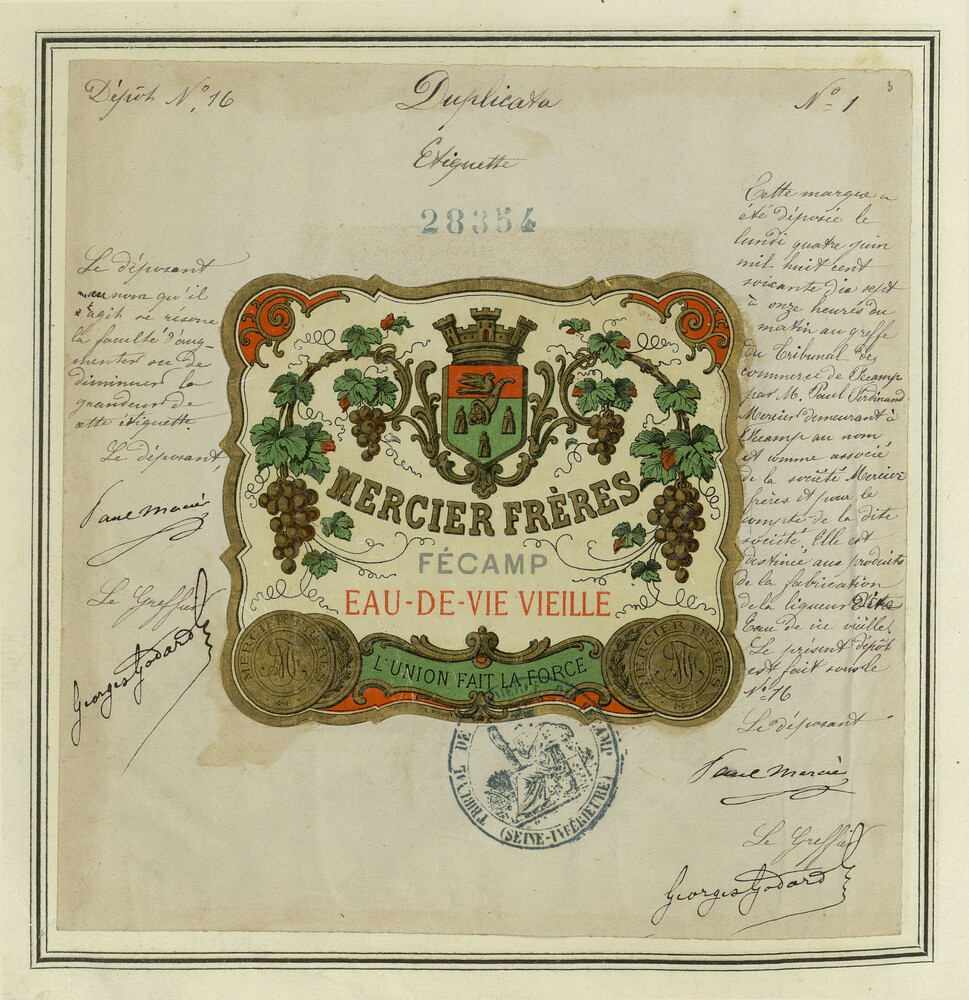 Dépôt N° 16
Duplicata
N° 1
3
Etiquette
28354
Cette marque a
été déposée le
lundi quatre juin
mil huit cent
soixante dix sept
à onze heures du
matin au greffe
du Tribunal de
commerce de Fécamp
par M. Paul Ferdinand
Mercier demeurant à
Fécamp au nom
et comme associé
de la société Mercier
frères et pour le
compte de la dite
société, Elle est
destinée aux produits
de la fabrication
de la liqueur dite
Eau de vie vieille
Le présent dépôt
est fait sous le
N° 16
Le déposant
Paul Mercier
Le Greffier
Georges Godard
Le déposant
qu'il
agit se réserve
la faculté d'aug
menter ou de
diminuer la
grandeur de
cette étiquette
Le déposant,
Paul Mercier
Le Greffier
Georges Godard
MERCIER FRÈRES
FÉCAMP
EAU-DE-VIE VIEILLE
L'UNION FAIT LA FORCE
MERCIER FRÈRES
MERCIER FRÈRES
TRIBUNAL DE FÉCAMP
(SEINE-INFÉRIEURE)